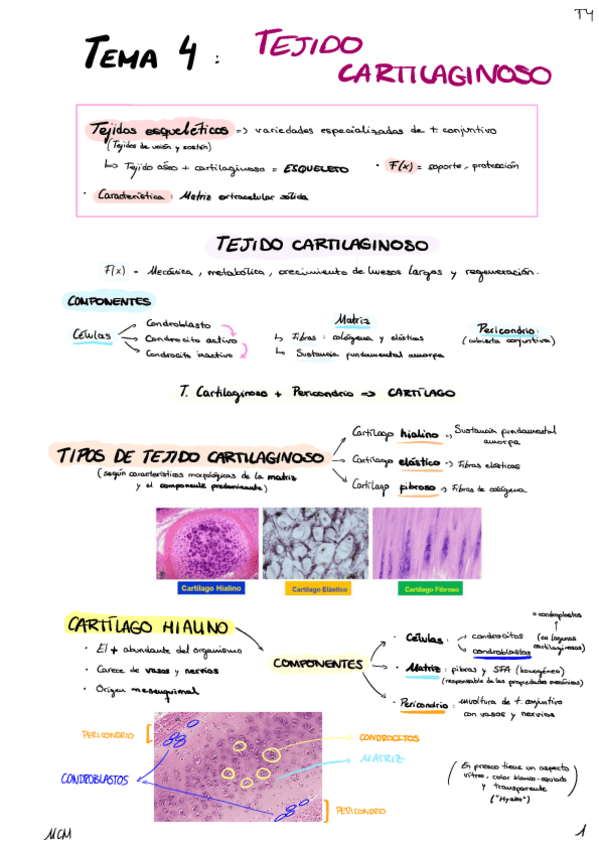 T4
TEMA 4 : TEJIDO
CARTILAGINOSO
Tejidos esqueléticos => variedades especializadas de t. conjuntivo
(Tejidos de unión y sostén)
↳ Tejido óseo + cartilaginoso = ESQUELETO · F(x) = soporte, protección
· Característica : Matriz extracelular sólida
TEJIDO CARTILAGINOSO
F(x) = Mecánica, metabólica, crecimiento de huesos largos y regeneración.
COMPONENTES
Células
Condroblasto
Condrocito activo
Condrocito inactivo
Matriz
↳ Fibras : colágena y elásticas
↳ Sustancia fundamental amorfa
Pericondrio:
(cubierta conjuntiva)
T. Cartilaginoso + Pericondrio => CARTÍLAGO
TIPOS DE TEJIDO CARTILAGINOSO
(según características morfológicas de la matriz
y el componente predominante)
Cartílago hialino : Sustancia fundamental
amorfa
Cartílago elástico : Fibras elásticas
Cartílago fibroso : Fibras de colágena
Cartílago Hialino
Cartílago Elástico
Cartílago Fibroso
CARTÍLAGO HIALINO
· El + abundante del organismo
· Carece de vasos y nervios
· Origen mesenquimal
COMPONENTES
= condroplastos
· Células : condrocitos (en lagunas
cartilaginosas)
condroblastos
· Matriz : fibras y SFA (homogénea)
(responsable de las propiedades mecánicas)
· Pericondrio : envoltura de t. conjuntivo
con vasos y nervios
PERICONDRIO
CONDROBLASTOS
CONDROCITOS
MATRIZ
PERICONDRIO
(En fresco tiene un aspecto
vítreo, color blanco-azulado
y transparente
("Hyalos")
MCM
1